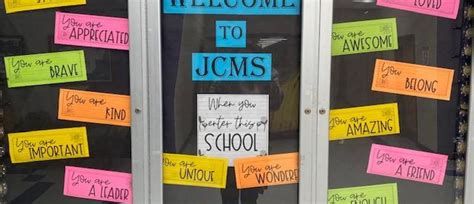 You are
APPRECIATED
You are
BRAVE
You are
KIND
You are
IMPORTANT
You are
A LEADER
WELCOME
TO
JCMS
When you
enter this
SCHOOL
You are
UNIQUE
You are
WONDERF
LOVED
You are
AWESOME
You are
BELONG
You are
AMAZING
You are
A FRIEND
You are
ENOUGH